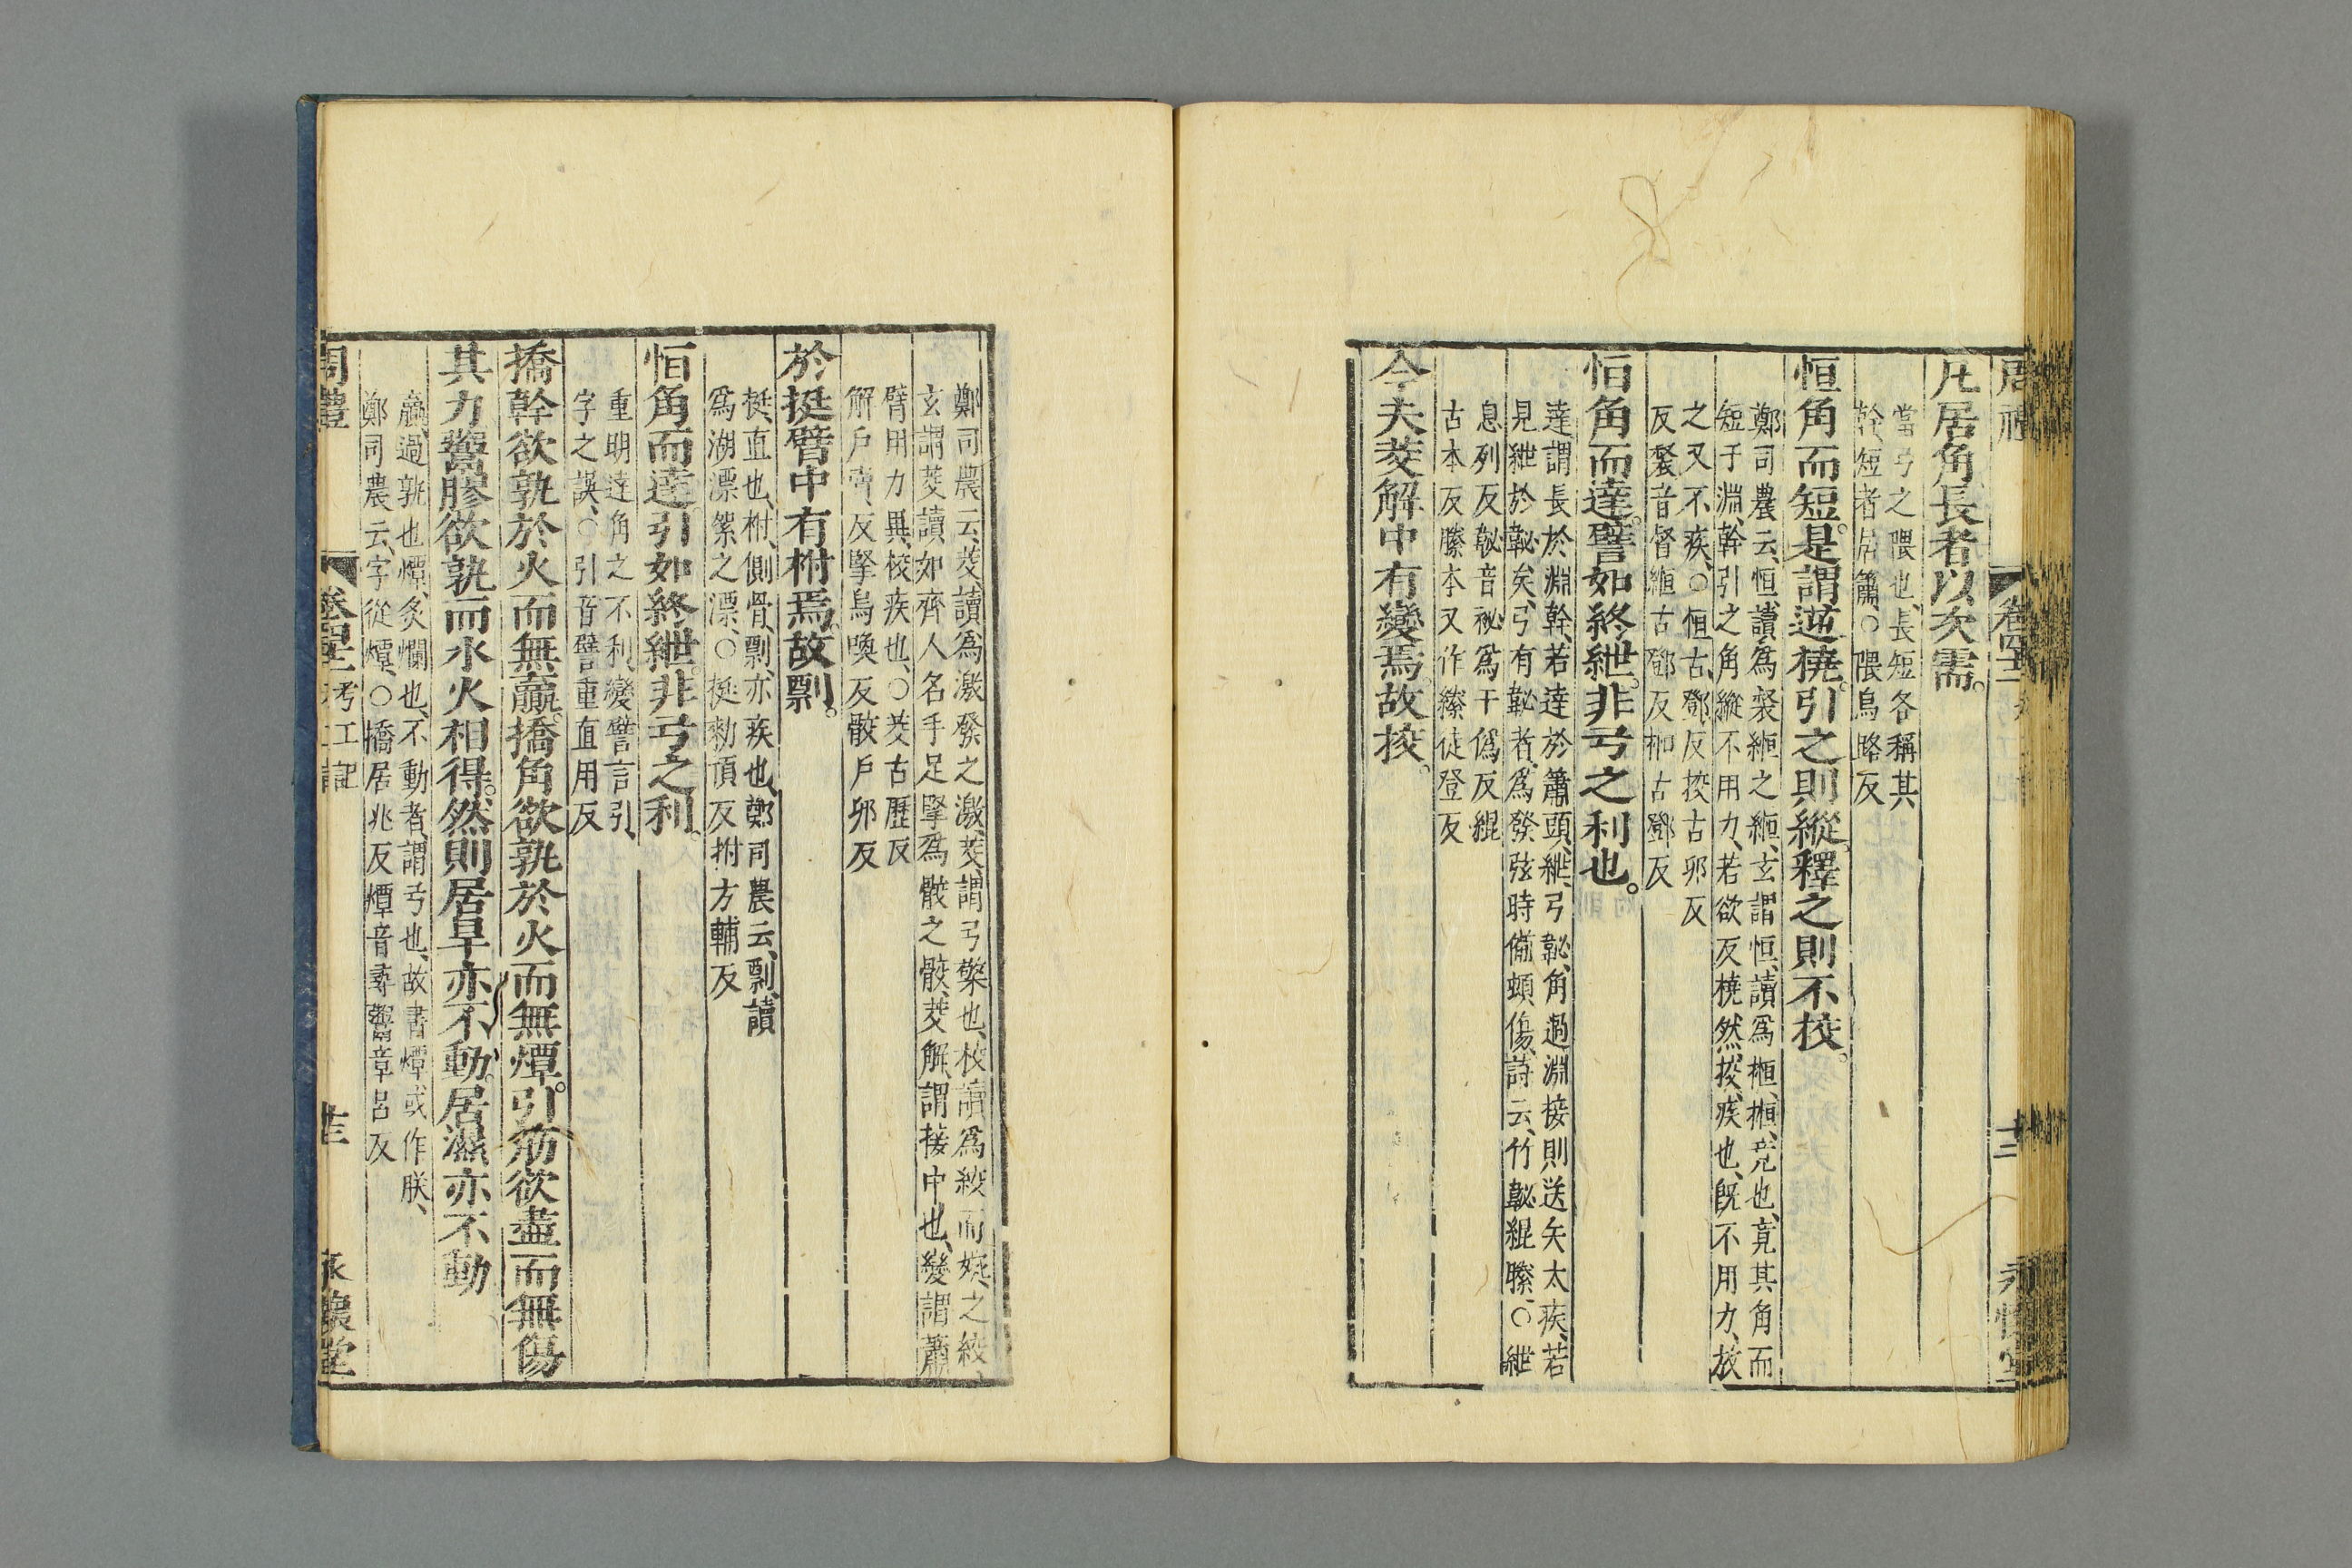 凡居角長者以次需。
當弓之隈也、長短各稱其
幹、短者居簫、○隈烏路反
恒角而短。是謂逆橈。引之則縱。釋之則不校。
鄭司農云、恒、讀爲裻縆之縆、玄謂恒、讀爲㮓、㮓、竟也、竟其角而
短于淵、幹引之角縱不用力、若欲反橈然、挍、疾也、旣不用力、放
之又不疾、○恒古鄧反挍古卯反
反裻音督縆古鄧反㮓古鄧反
恒角而達。譬如終紲。非弓之利也。
達謂長於淵幹、若達於簫頭、紲、弓䪐、角過淵接則送矢太疾、若
見紲於䪐矣、弓有䪐者、爲發弦時備頻傷、詩云、竹䪐緄縢、○紲
息列反䪐音祕爲于僞反緄
古本反縢本又作縢徒登反
今夫茭解中有變焉。故挍。
鄭司農云、茭、讀爲激發之激、茭、謂弓檠也、校讀爲絞而婉、之絞、
玄謂茭讀如齊人名手足掔爲骹之骹、茭解、謂接中也、變謂蕭
臂用力異、校疾也、○茭古歷反
解戶賣、反掔烏喚反骹戶卯反
於挺臂中有柎焉。故剽。
挺、直也、柎、側骨、剽、亦疾也、鄭司農云、剽、讀
爲湖漂絮之漂、○挺勑頂反拊方輔反
恒角而達引如終紲。非弓之利。
重明達角之不利、變譬言引、
字之誤、○引音譬重直用反
撟幹欲孰於火而無贏。撟角欲孰於火而無燂。引筋欲盡而無傷
其力鬻膠欲孰而水火相得。然則居旱亦不動。居濕亦不動
贏、過孰也、燂、炙爛也、不動者、謂弓也、故書燂或作朕、
鄭司農云、字從燂、○撟居兆反燂音尋鬻章呂反
周禮 卷四十二 考工記 十三 永懷堂